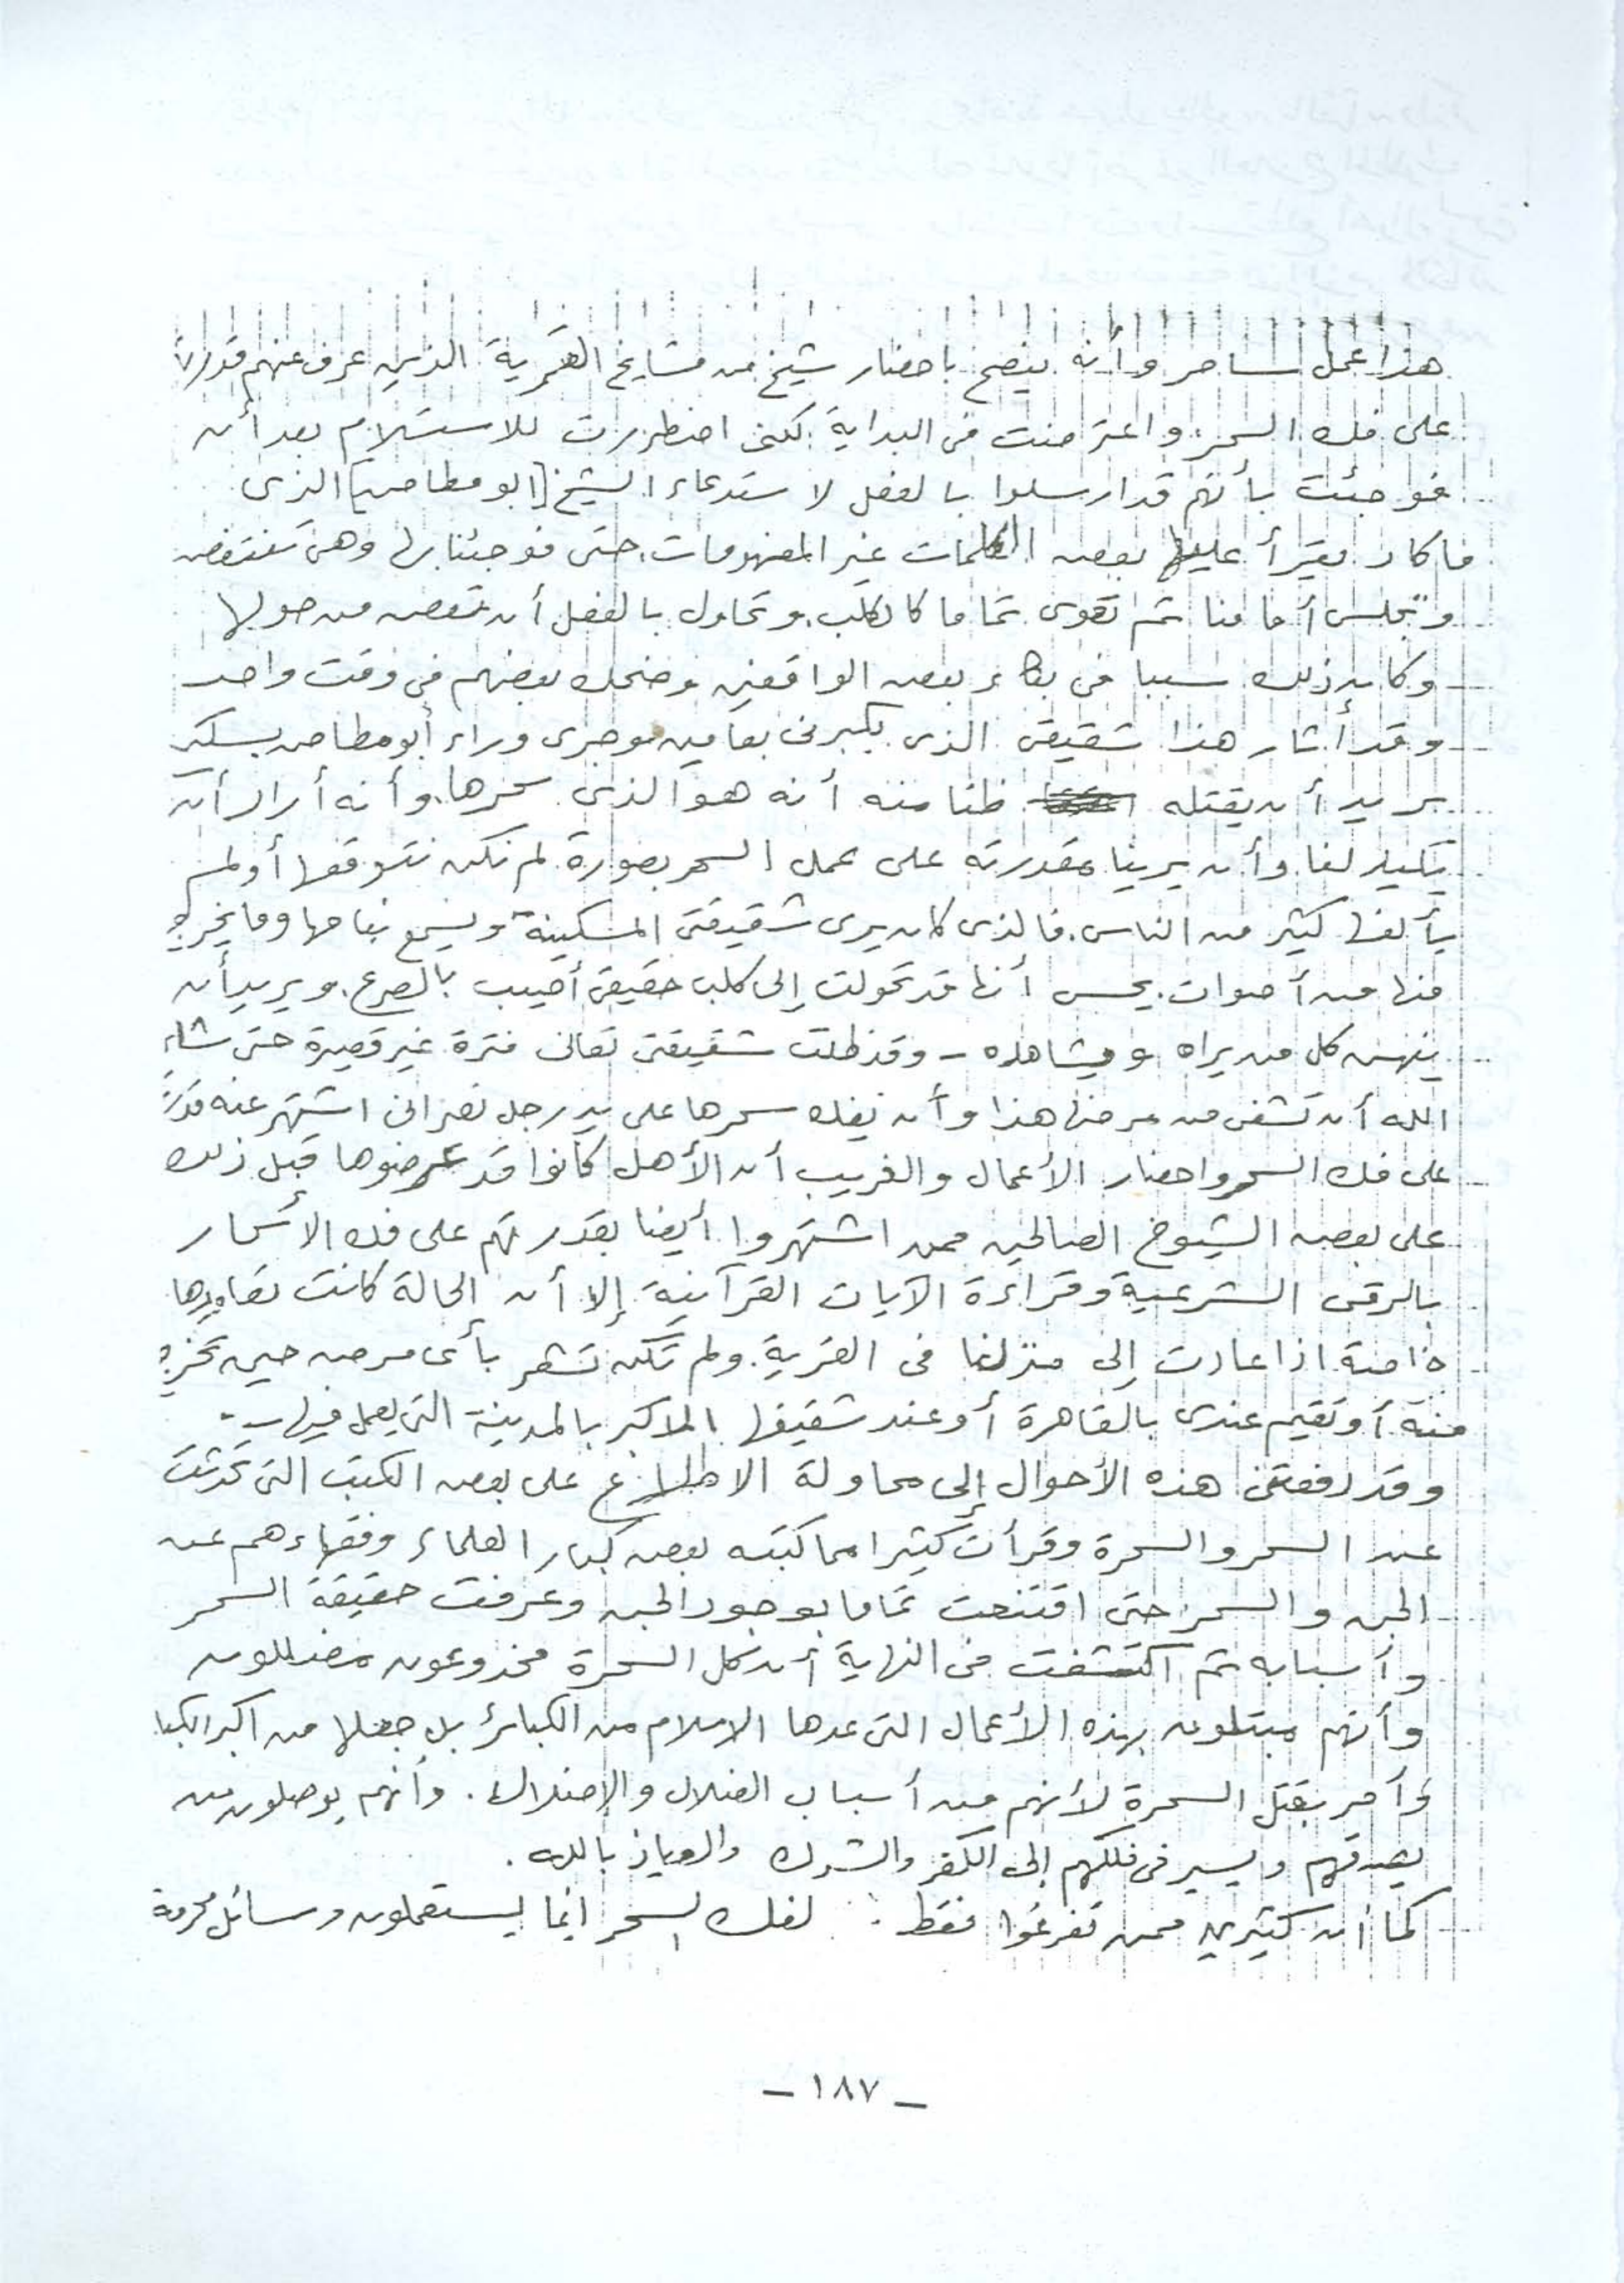 هذا عمل ساحر وأنه ينصح باحضار شيخ من مشايخ القمرية الذين عرف عنهم قدرتهم
على فك السحر واعترضت فى البداية لكنى اضطررت للاستسلام بعد أن
فوجئت بأنهم قد ارسلوا بالفعل لاستدعاء الشيخ [ابو مطاحن] الذى
ما كاد يقرأ عليها بعض الكلمات غير المفهومات حتى فوجئنا بها وهى تنتفض
وتجلس أمامنا ثم تعوى تماما كالكلب وتحاول بالفعل أن تعض من حولها
وكان ذلك سببا فى بكاء بعض الواقفين وضحك بعضهم فى وقت واحد
وقد أثار هذا شقيقى الذى يكبرنى بعامين وجرى وراء أبو مطاحن بسكين
يريد أن يقتله ظنا منه أنه هو الذى سحرها وأنه أراد أن
يكيد لنا وأن يرينا مقدرته على عمل السحر بصورة لم نكن نتوقعها أو لم
يألفها كثير من الناس. فالذى كان يرى شقيقتى المسكينة ويسمع نباحها وما يخرج
منها من أصوات. يحس أنها قد تحولت إلى كلب حقيقى أصيب بالصرع. ويريد أن
ينهش كل من يراه ويشاهده - وقد ظلت شقيقتى تعانى فترة غير قصيرة حتى شاء
الله أن تشفى من مرضها هذا وأن يفك سحرها على يد رجل نصرانى اشتهر عنه قدرته
على فك السحر واحضار الأعمال والغريب أن الأهل كانوا قد عرضوها قبل ذلك
على بعض الشيوخ الصالحين ممن اشتهروا أيضا بقدرتهم على فك الأسحار
بالرقى الشرعية وقراءة الآيات القرآنية إلا أن الحالة كانت تعاودها
خاصة اذا عادت إلى منزلنا فى القرية. ولم تكن تشعر بأى مرض حين تخرج
منه أو تقيم عندى بالقاهرة أو عند شقيقها الاكبر بالمدينة التى يعمل فيها -
وقد دفعتنى هذه الأحوال إلى محاولة الاطلاع على بعض الكتب التى تحدثت
عن السحر والسحرة وقرأت كثيرا مما كتبه بعض كبار العلماء وفقهاءهم عن
الجن والسحر حتى اقتنعت تماما بوجود الجن وعرفت حقيقة السحر
وأسبابه ثم اكتشفت فى النهاية أن كل السحرة مخدوعون مضللون
وأنهم مبتلون بهذه الأعمال التى عدها الاسلام من الكبائر بل جعلها من اكبر الكبا
وأمر بقتل السحرة لأنهم من أسباب الضلال والإضلال. وأنهم يوصلون من
يصدقهم ويسير فى فلكهم إلى الكفر والشرك والعياذ بالله.
كما أن كثيرين ممن تفرغوا فقط لفك السحر انما يستعملون وسائل محرمة
- ١٨٧ -